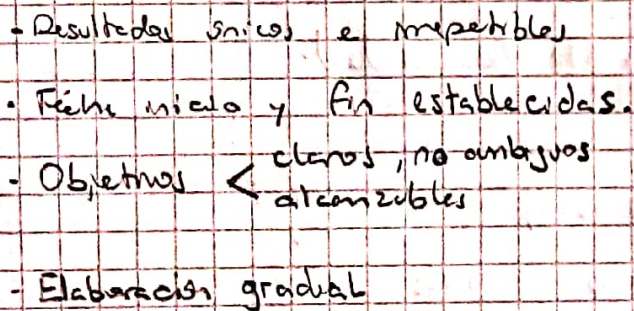 - Resultados únicos e irrepetibles
- Fecha inicio y fin establecidas.
- Objetivos < claros, no ambiguos
alcanzables
- Elaboración gradual